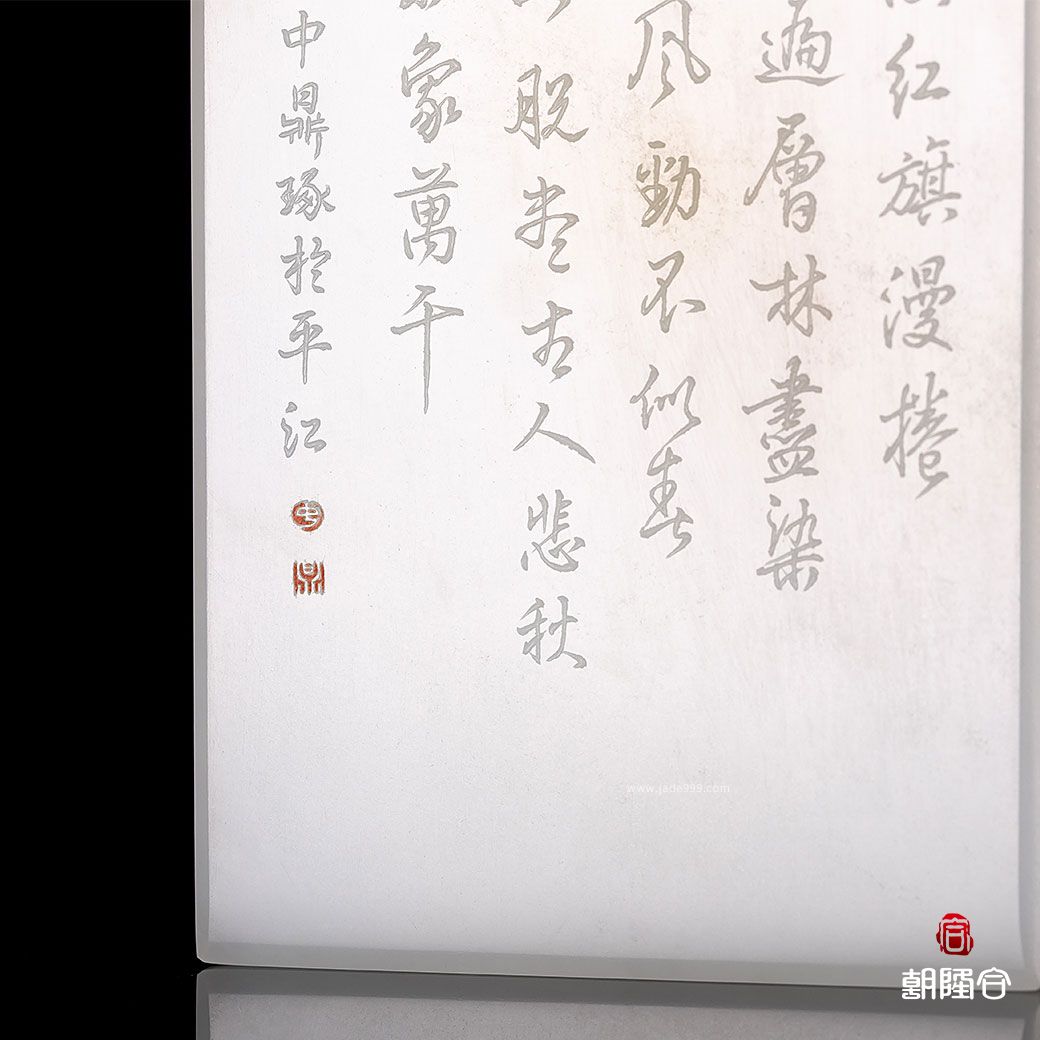 红旗漫捲
遍層林盡染
风勁不似春
脱尽古人悲秋
象萬千
中鼎琢於平江
中
鼎
www.jade999.com
宫
朝隆合